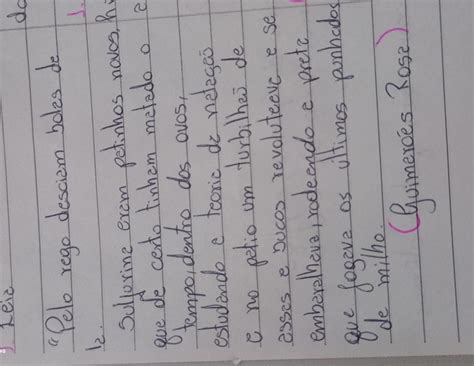 Leia
"Pelo rego desciam bolas de
lã
Sulfurina eram patinhos novos,
que de certo tinham metado o
tempo, dentro dos ovos,
estudando a teoria da natação
e no pátio um turbilhão de
asas e sucos revoluteava e se
embaralhava, rodeando a preta
que jogava os ultimos punhados
de milho.
(Guimarães Rosa)